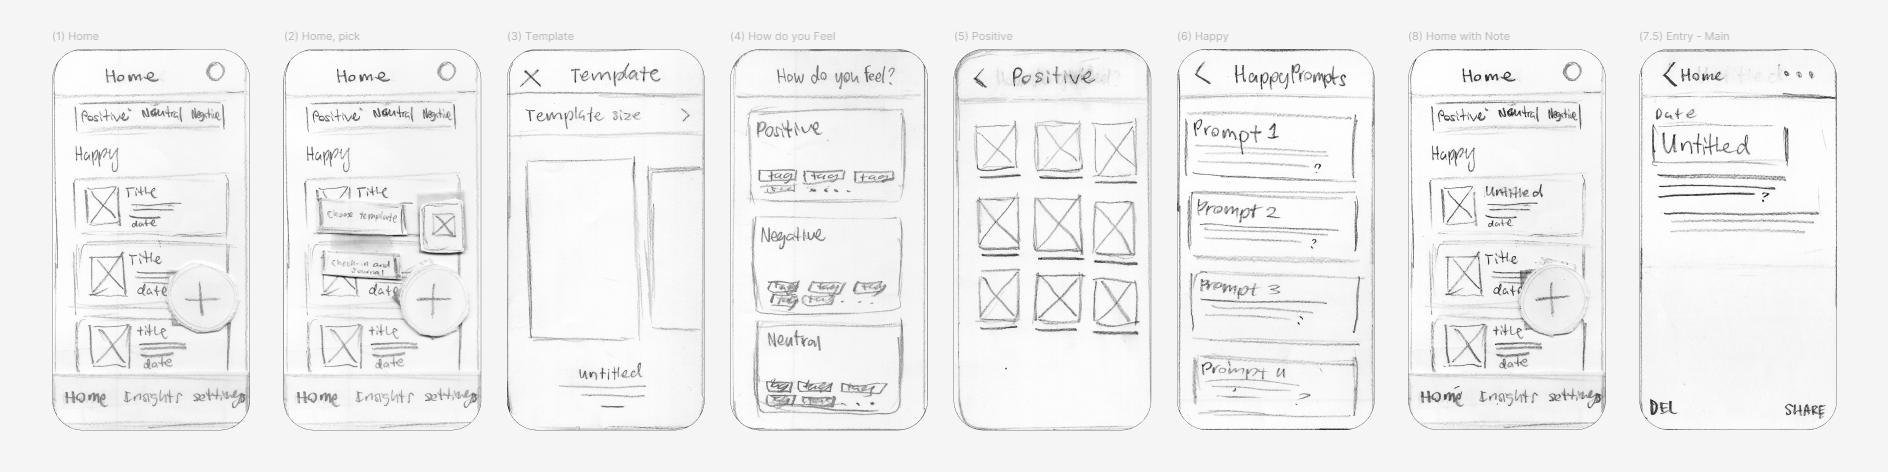 (1) Home
Home
Positive Neutral Negative
Happy
Title
date
Title
date
title
date
Home Insights settings
(2) Home, pick
Home
Positive Neutral Negative
Happy
Title
Choose template
Check-in and
Journal
date
title
date
Home Insights settings
(3) Template
X Template
Template size >
untitled
(4) How do you Feel
How do you feel?
Positive
tag tag tag
Negative
tag tag tag
tag tag
Neutral
tag tag tag
tag tag
(5) Positive
< Positive
(6) Happy
< Happy Prompts
Prompt 1
?
Prompt 2
?
Prompt 3
?
Prompt 4
?
(8) Home with Note
Home
Positive Neutral Negative
Happy
Untitled
date
Title
date
title
date
Home Insights settings
(7.5) Entry - Main
< Home
Date
Untitled
?
DEL SHARE